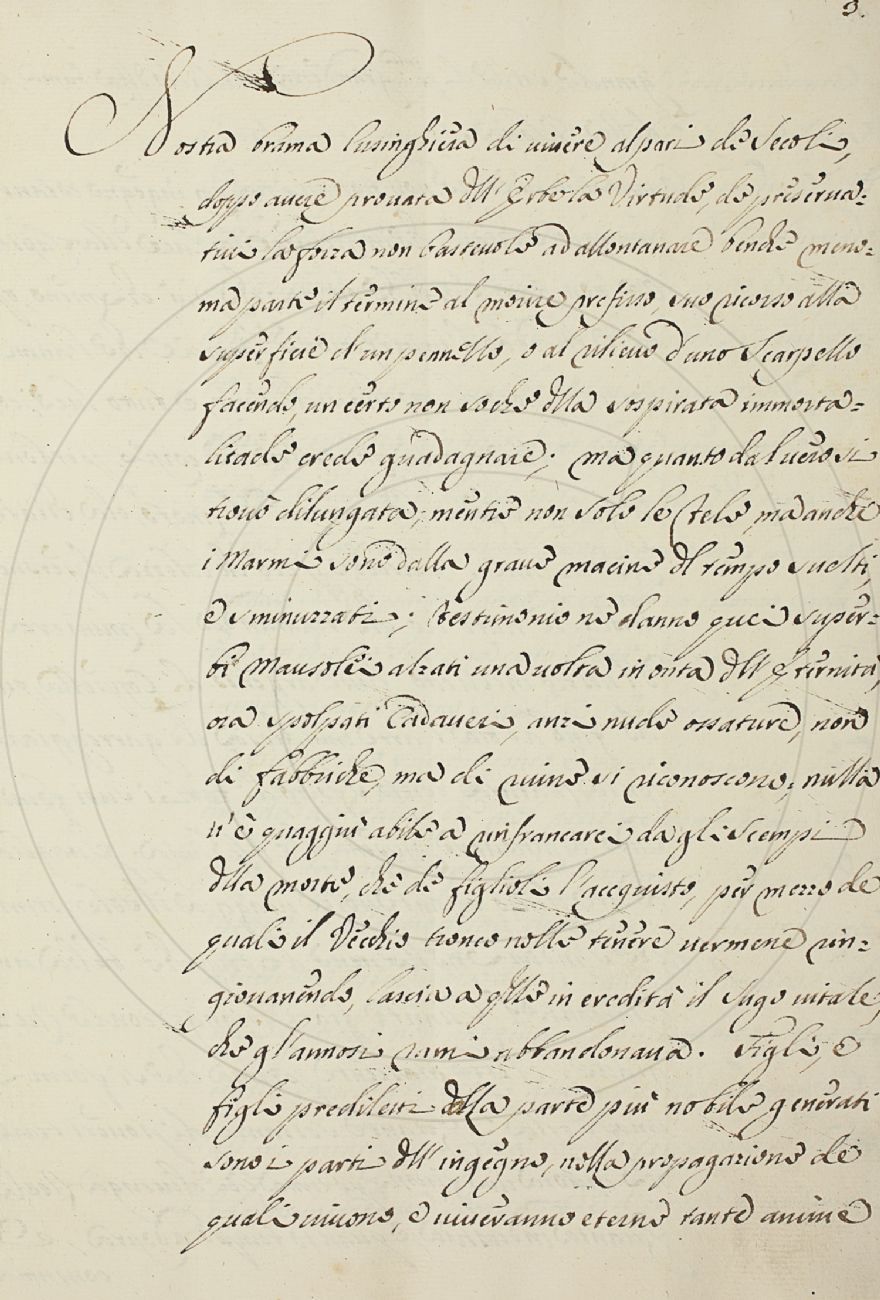 3.
Nostra brama lusinghiera di vivere al pari de Secoli,
doppo avere provata dll'Erbe la Virtude, de preserva=
tivi la forza non bastevole ad allontanare benche meno=
ma parte il termine al morire prefisso, suo ricorso alla
superficie d'un pennello, o al rilievo d'uno Scarpello
facendo, un certo non soche dlla sospirata immorta=
litade crede guadagnare; ma quanto dal vero si
trove dilungata, mentre non solo le Tele, ma anche
i Marmi sono dalla grave macine dl tempo svelti,
e sminuzzati; testimonio ne danno quei super=
bi Mausolei alzati una volta in onta dll'Eternità,
ora spolpati Cadaveri, anzi nude ossature, non
di fabbriche, ma di ruine si riconoscono; nulla
v'è quaggiù abile a rinfrancarci da gli Scempi
dlla morte, che de figlioli l'acquisto, per mezzo de
quali il Vecchio tronco nelle tenere vermene rin=
giovanendo, lascia a qlle in eredità il sugo vitale,
che gl'annosi rami abbandonava. Figli, e
figli prediletti dlla parte più nobile generati
sono i parti dll'ingegno, nella propagazione de
quali vivono, e viveranno eterne tante anime